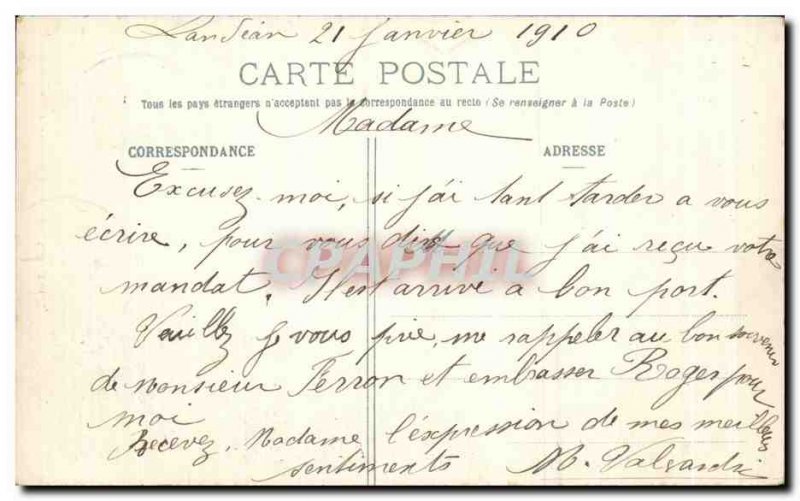 Landéan 21 Janvier 1910
CARTE POSTALE
Tous les pays étrangers n'acceptent pas la correspondance au recto (Se renseigner à la Poste)
Madame
CORRESPONDANCE
ADRESSE
Excusez moi, si j'ai tant tarder a vous
écrire, pour vous dire que j'ai reçu votre
mandat. Il est arrivé a bon port.
Veuillez je vous prie, me rappeler au bon souvenir
de monsieur Ferron et embrasser Roger pour
moi
Recevez, Madame l'expression de mes meilleurs
sentiments M.
CPAPHIL